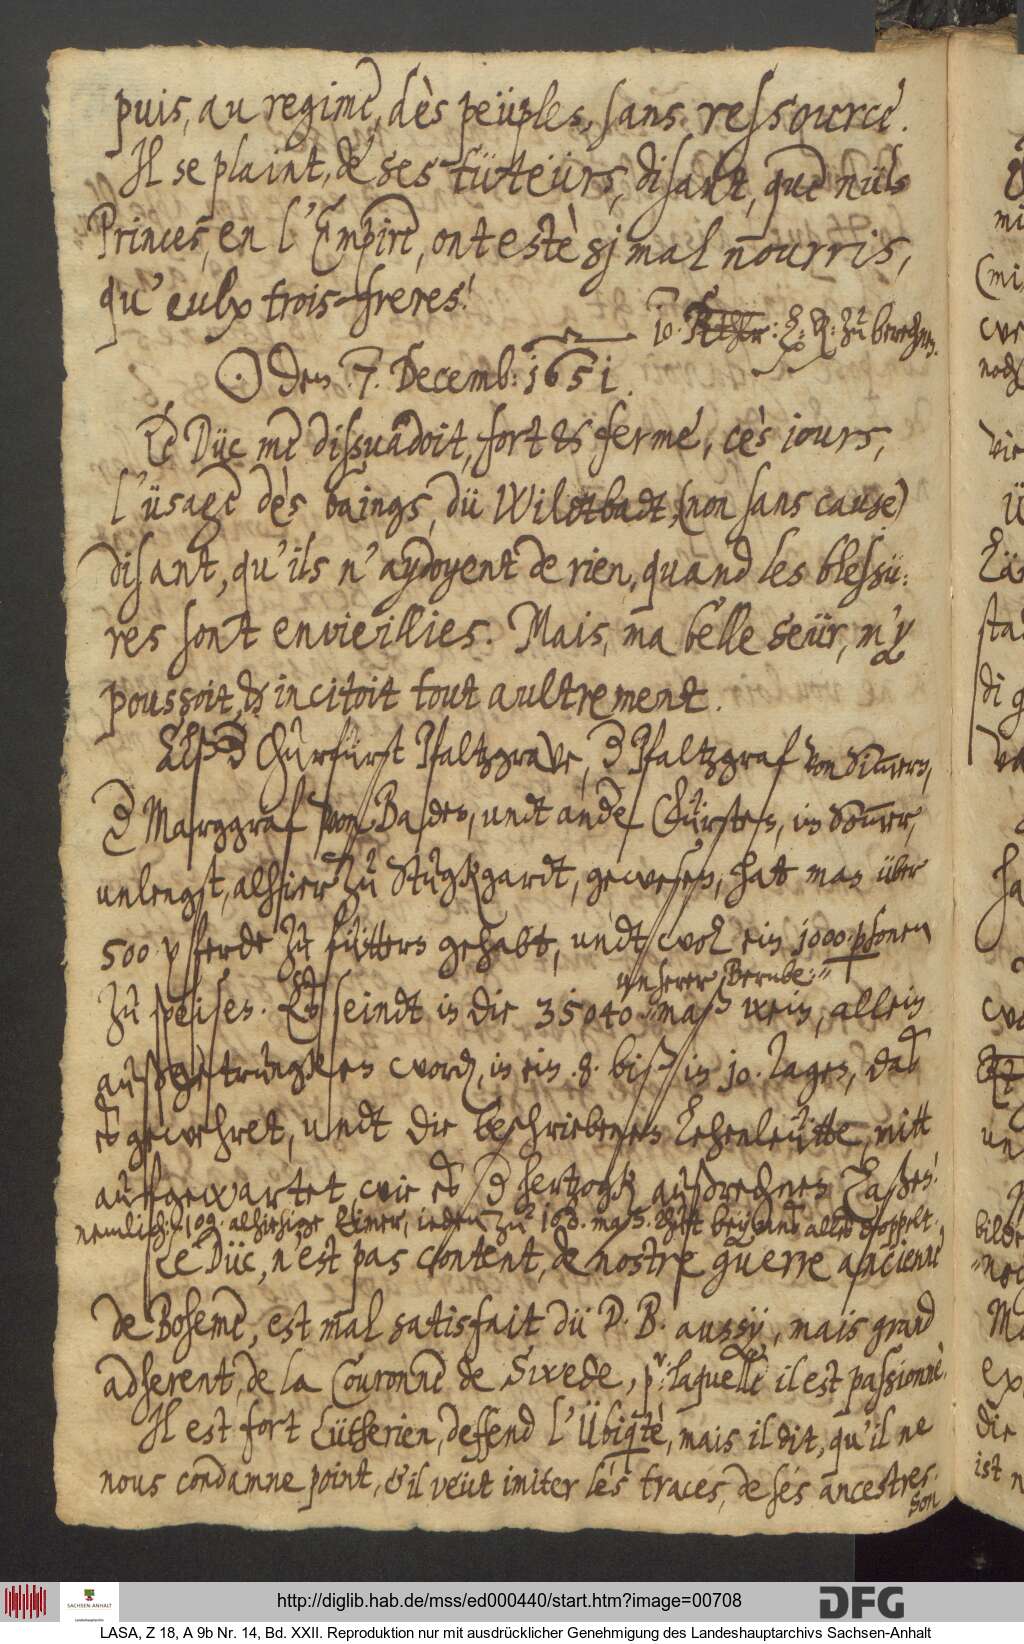 puis, au regime, dès peüples, sans ressource.
Il se plaint, de ses tüteürs, disant, que nüls
Princes, en l'Empire, ont estè sj mal nourris,
qu'eulx trois freres!
10. Rthlr: zu berechnen.
⊙ den 7. Decemb: 1651.
Le Düc me dissuadoit, fort & ferme, cès jours,
l'üsage dès baings, dü Wildtbadt, (non sans cause)
disant, qu'ils n'aydoyent de rien, quand les blessü:
res sont envieillies. Mais, ma belle seür, m'y
poussoit, & incitoit tout aultrement.
Alß d Churfürst Pfaltzgrave, d Pfaltzgraf von Simmern,
d Marggraf von Baden, undt andere Fürsten, im Sommer,
unlengst, alhier zu Stugkgardt, gewesen, hatt man über
500 pferde zu füttern gehabt, undt wol ein 1000 personen
zu speisen. Es seindt in die 35040 maß wein, allein
unserer Bernb:
außgetruncken worden, in ein 8. biß in 10. Tagen, das
es gewehret, undt die beschriebenen Lehenleütte, mitt
aufgewartet, wie es d Hertzogk außrechnen laßen.
nemlich: 109. alhiesige Eimer, ieden zu 160. maß. thut bey uns alles doppelt.
Le Düc, n'est pas content, de nostre guerre ancienne
de Boheme, est mal satisfait dü P. B. aussy, mais grand
adherent, de la Couronne de Swede, pr: laquelle il est passionnè.
Il est fort Lütherien, deffend l'Übiqtè, mais il dit, qu'il ne
nous condamne point, & il veut imiter lès traces, de sès ancestres.
Son
http://diglib.hab.de/mss/ed000440/start.htm?image=00708
SACHSEN-ANHALT
DFG
LASA, Z 18, A 9b Nr. 14, Bd. XXII. Reproduktion nur mit ausdrücklicher Genehmigung des Landeshauptarchivs Sachsen-Anhalt